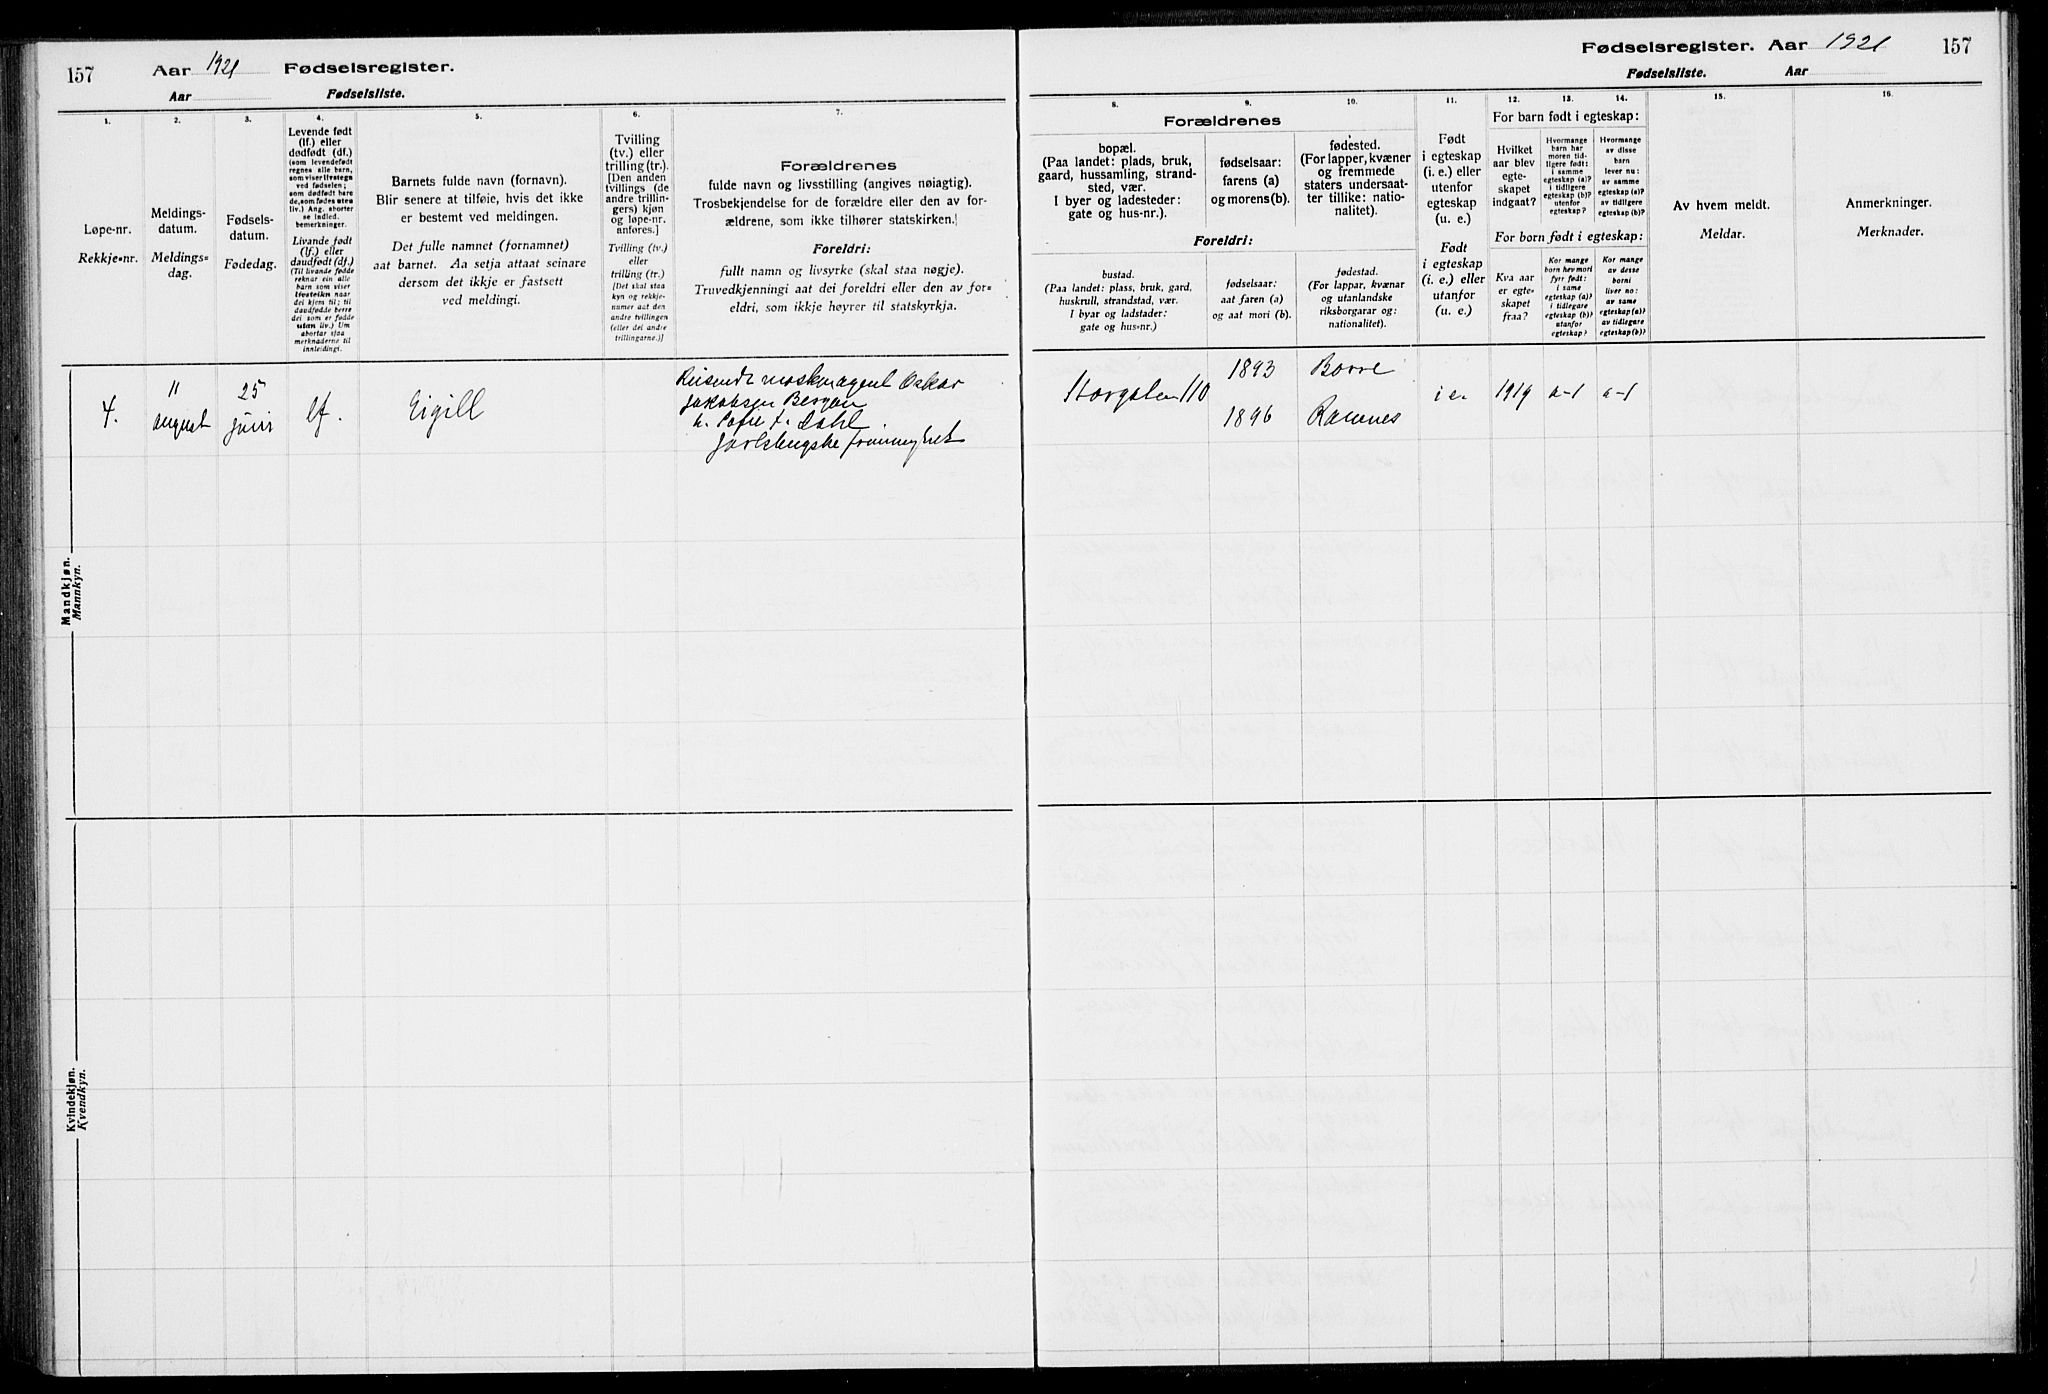 157 Aar 1921 Fødselsregister.
Aar Fødselsliste.
1.
2.
3.
4.
5.
6.
7.
Løpe-nr.
Rekkje-nr.
Meldings-
datum.
Meldings-
dag.
Fødsels-
datum.
Fødedag.
Levende født
(lf.) eller
dødfødt (df.)
(som levendefødt
regnes alle barn,
som viser livstegn
ved fødselen;
som dødfødt bare
de, som fødes uten
liv.) Ang. aborter
se indled.
bemerkninger.
Livande født
(lf.) eller
daudfødt (df.)
(Til livande fødde
reknar ein alle
barn som viser
livsteikn naar
dei kjem til; til
daudfødde berre
dei som er fødde
utan liv.) Um
abortar sjaa
merknaderne til
innleidingi.
Barnets fulde navn (fornavn).
Blir senere at tilføie, hvis det ikke
er bestemt ved meldingen.
Det fulle namnet (fornamnet)
aat barnet. Aa setja attaat seinare
dersom det ikkje er fastsett
ved meldingi.
Tvilling
(tv.) eller
trilling (tr.).
[Den anden
tvillings (de
andre trillin-
gers) kjøn
og løpe-nr.
anføres.]
Tvilling (tv.)
eller
trilling (tr.)
[Det skal staa
kyn og rekkje-
numer aat den
andre tvillingen
(eller dei andre
trillingarne.)]
Forældrenes
fulde navn og livsstilling (angives nøiagtig).
Trosbekjendelse for de forældre eller den av for-
ældrene, som ikke tilhører statskirken.
Foreldri:
fullt namn og livsyrke (skal staa nøgje).
Truvedkjenningi aat dei foreldri eller den av for-
eldri, som ikkje høyrer til statskyrkja.
Mandkjøn.
Mannkyn.
4.
11
august
25
juni
lf.
Eigill
Reisende maskinagent Oskar
Jakobsen Bergan
h. Sofie f. Dahl
Jarlsbergske frimenighet
Kvindekjøn.
Kvendkyn.
Fødselsregister. Aar 1921 157
Fødselsliste. Aar
8.
9.
10.
11.
12.
13.
14.
15.
16.
Forældrenes
bopæl.
(Paa landet: plads, bruk,
gaard, hussamling, strand-
sted, vær.
I byer og ladesteder:
gate og hus-nr.).
fødselsaar:
farens (a)
og morens (b).
fødested.
(For lapper, kvæner
og fremmede
staters undersaat-
ter tillike: natio-
nalitet).
Foreldri:
bustad.
(Paa landet: plass, bruk, gard,
huskrull, strandstad, vær.
I byar og ladstader:
gate og hus-nr.)
fødselsaar:
aat faren (a)
og aat mori (b).
fødestad.
(For lappar, kvænar
og utanlandske
riksborgarar og:
nationalitet).
Født
i egteskap
(i. e.) eller
utenfor
egteskap
(u. e.)
Født
i egteskap
(i. e.) eller
utanfor
(u. e.)
For barn født i egteskap:
Hvilket
aar blev
egte-
skapet
indgaat?
Hvormange
barn har
moren tid-
ligere født:
i samme
egteskap (a)?
i tidligere
egteskap (b)?
utenfor
egteskap?
Hvormange
av disse
barn
lever nu:
av samme
egteskap (a)?
av tidligere
egteskap (b)?
For born født i egteskap:
Kva aar
er egte-
skapet
fraa?
Kor mange
born hev mori
fyrr født:
i same
egteskap (a)?
i tidlegare
egteskap (b)?
utanfor
egteskap?
Kor mange
av desse
borni
liver no:
av same
egteskap (a)?
av tidlegare
egteskap (b)?
Av hvem meldt.
Meldar.
Anmerkninger.
Merknader.
Storgaten 110
1893
1896
Borre
Ramnes
i e.
1919
a-1
a-1